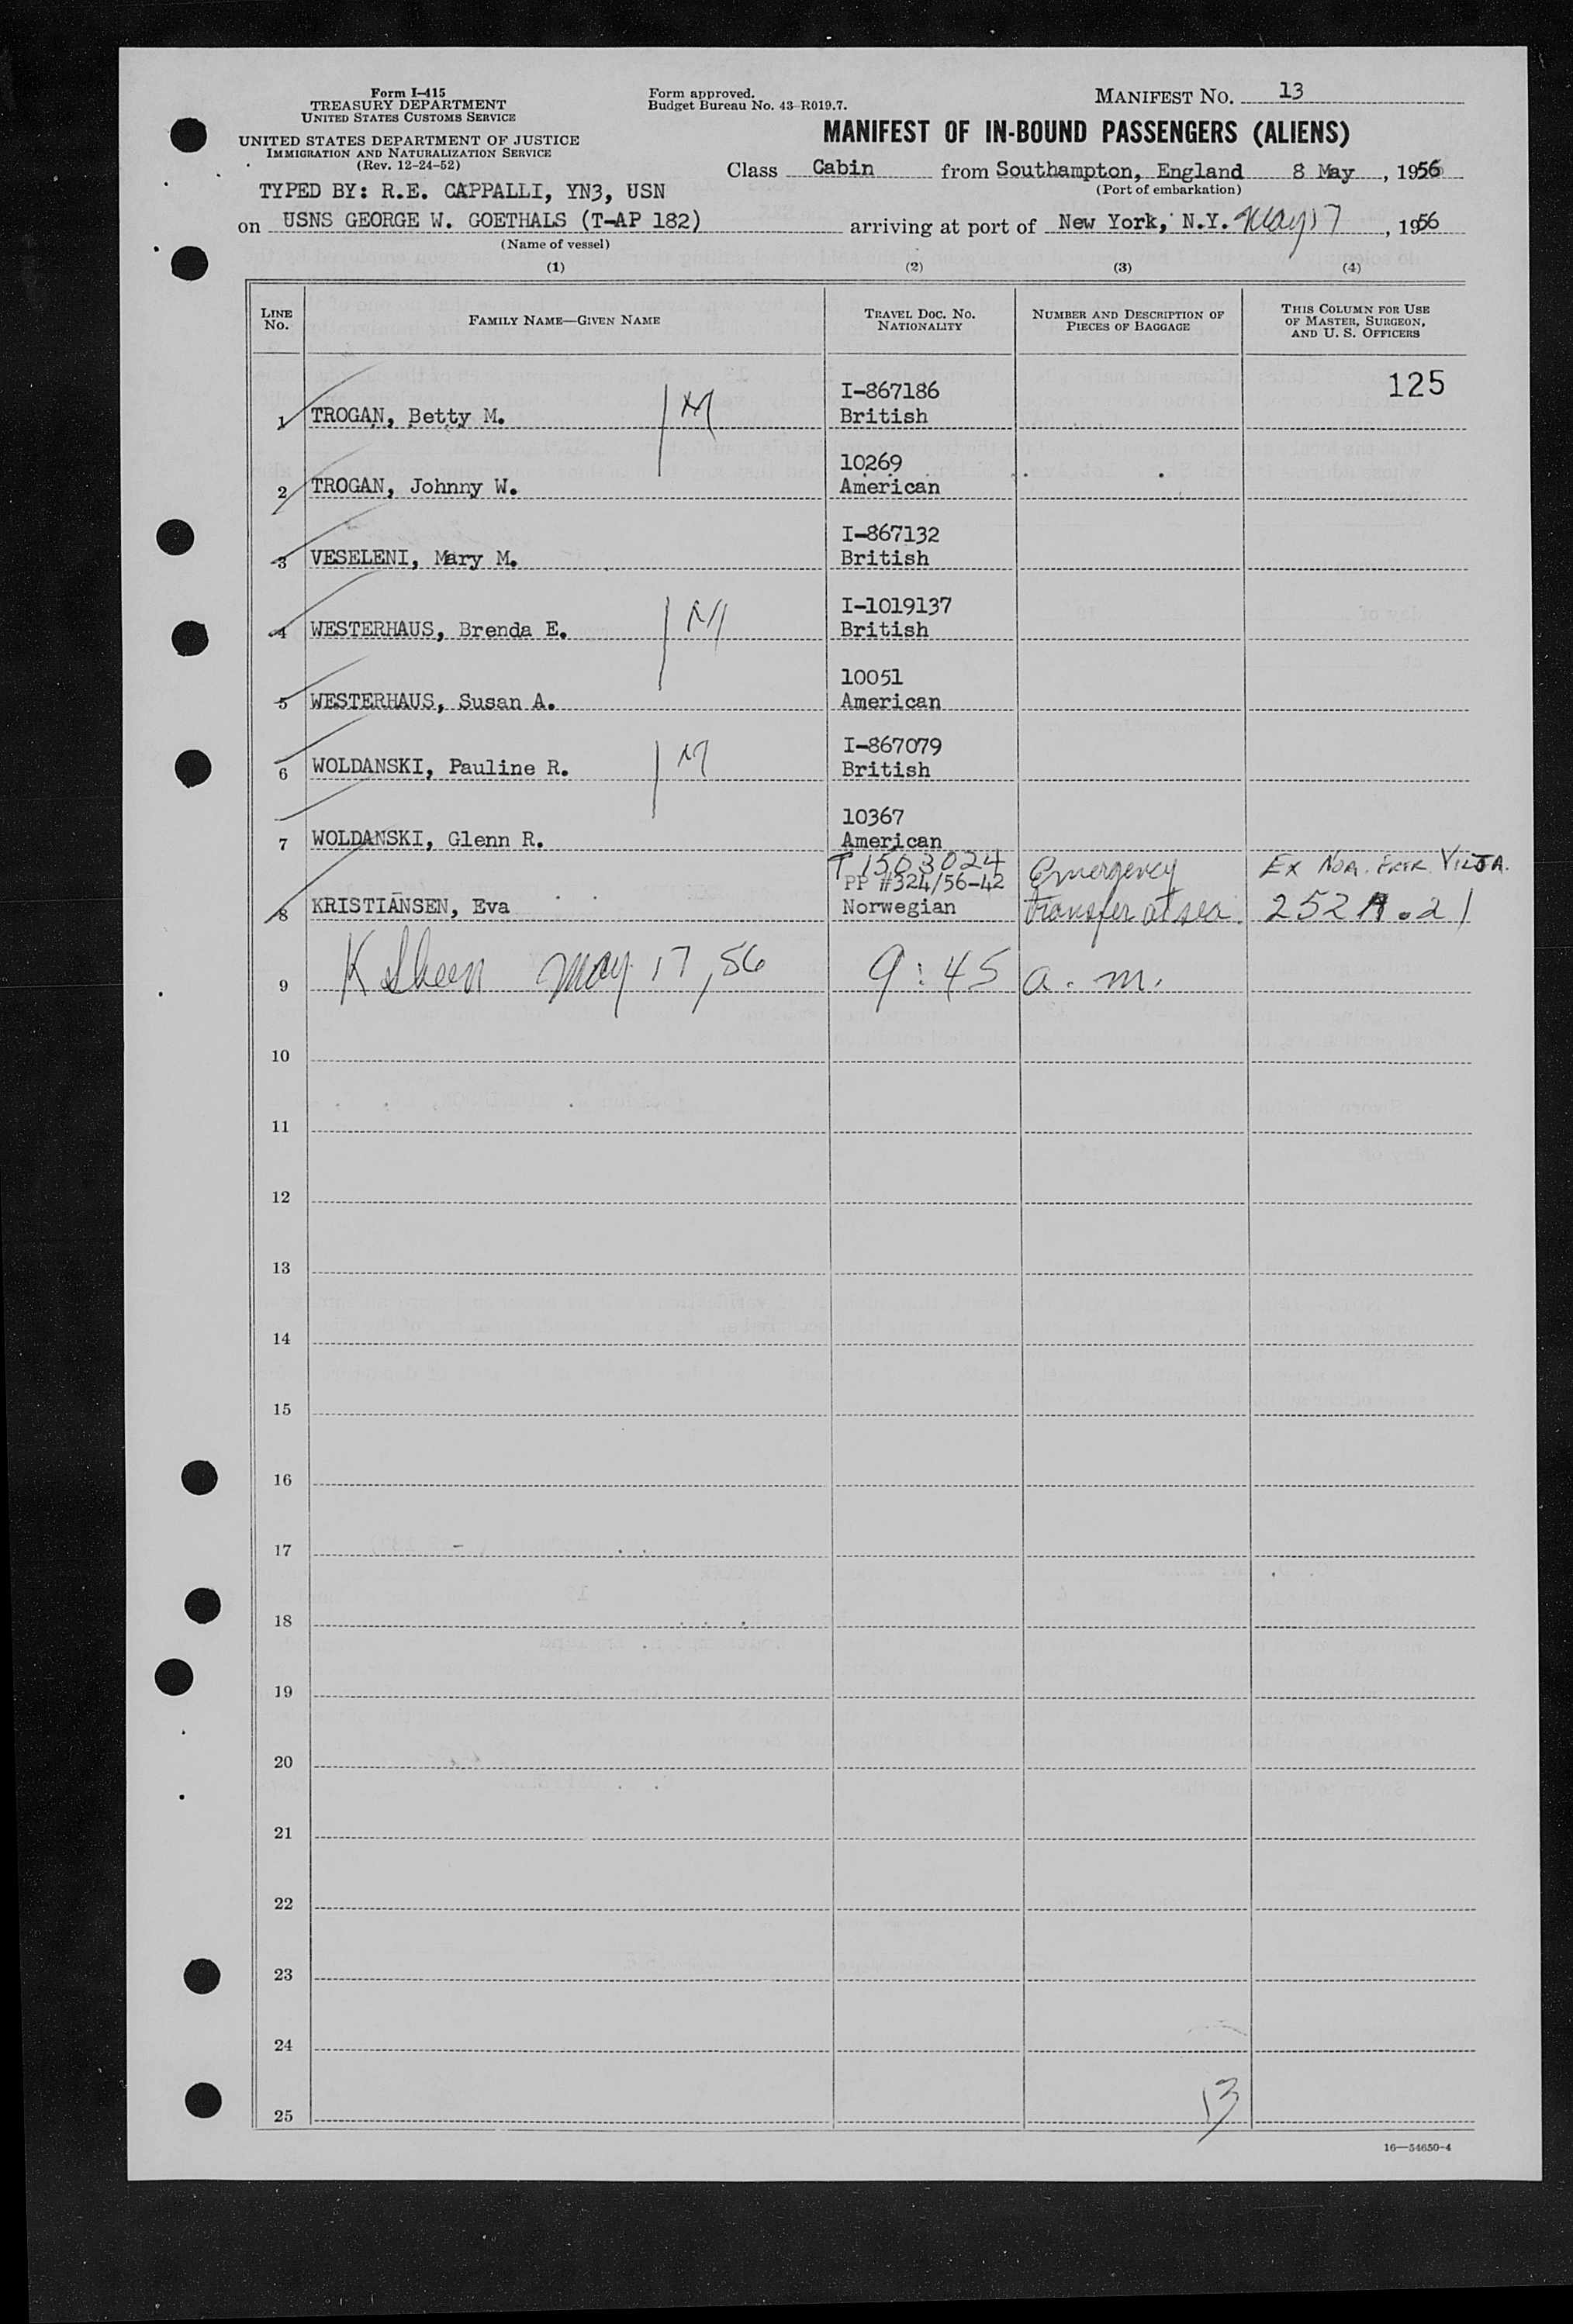 Form I-415
TREASURY DEPARTMENT
UNITED STATES CUSTOMS SERVICE
UNITED STATES DEPARTMENT OF JUSTICE
IMMIGRATION AND NATURALIZATION SERVICE
(Rev. 12-24-52)
Form approved.
Budget Bureau No. 43-R019.7.
MANIFEST NO. 13
MANIFEST OF IN-BOUND PASSENGERS (ALIENS)
Class Cabin from Southampton, England 8 May, 1956
(Port of embarkation)
TYPED BY: R.E. CAPPALLI, YN3, USN
on USNS GEORGE W. GOETHALS (T-AP 182) arriving at port of New York, N.Y. May 17, 1956
(Name of vessel)
(1) (2) (3) (4)
LINE NO. FAMILY NAME—GIVEN NAME TRAVEL DOC. NO. NATIONALITY NUMBER AND DESCRIPTION OF PIECES OF BAGGAGE THIS COLUMN FOR USE OF MASTER, SURGEON, AND U. S. OFFICERS
125
I-867186
1 TROGAN, Betty M. M British
10269
2 TROGAN, Johnny W. American
I-867132
3 VESELENI, Mary M. British
I-1019137
4 WESTERHAUS, Brenda E. M British
10051
5 WESTERHAUS, Susan A. American
I-867079
6 WOLDANSKI, Pauline R. M British
10367
7 WOLDANSKI, Glenn R. American
T 1503024 Emergency EX NOR. FRTR. VILJA.
PP #324/56-42
8 KRISTIANSEN, Eva Norwegian transfer at sea. 252 A.21
9 K Sheen May 17, 56 9:45 a.m.
10
11
12
13
14
15
16
17
18
19
20
21
22
23
24
25
13
16—54650-4